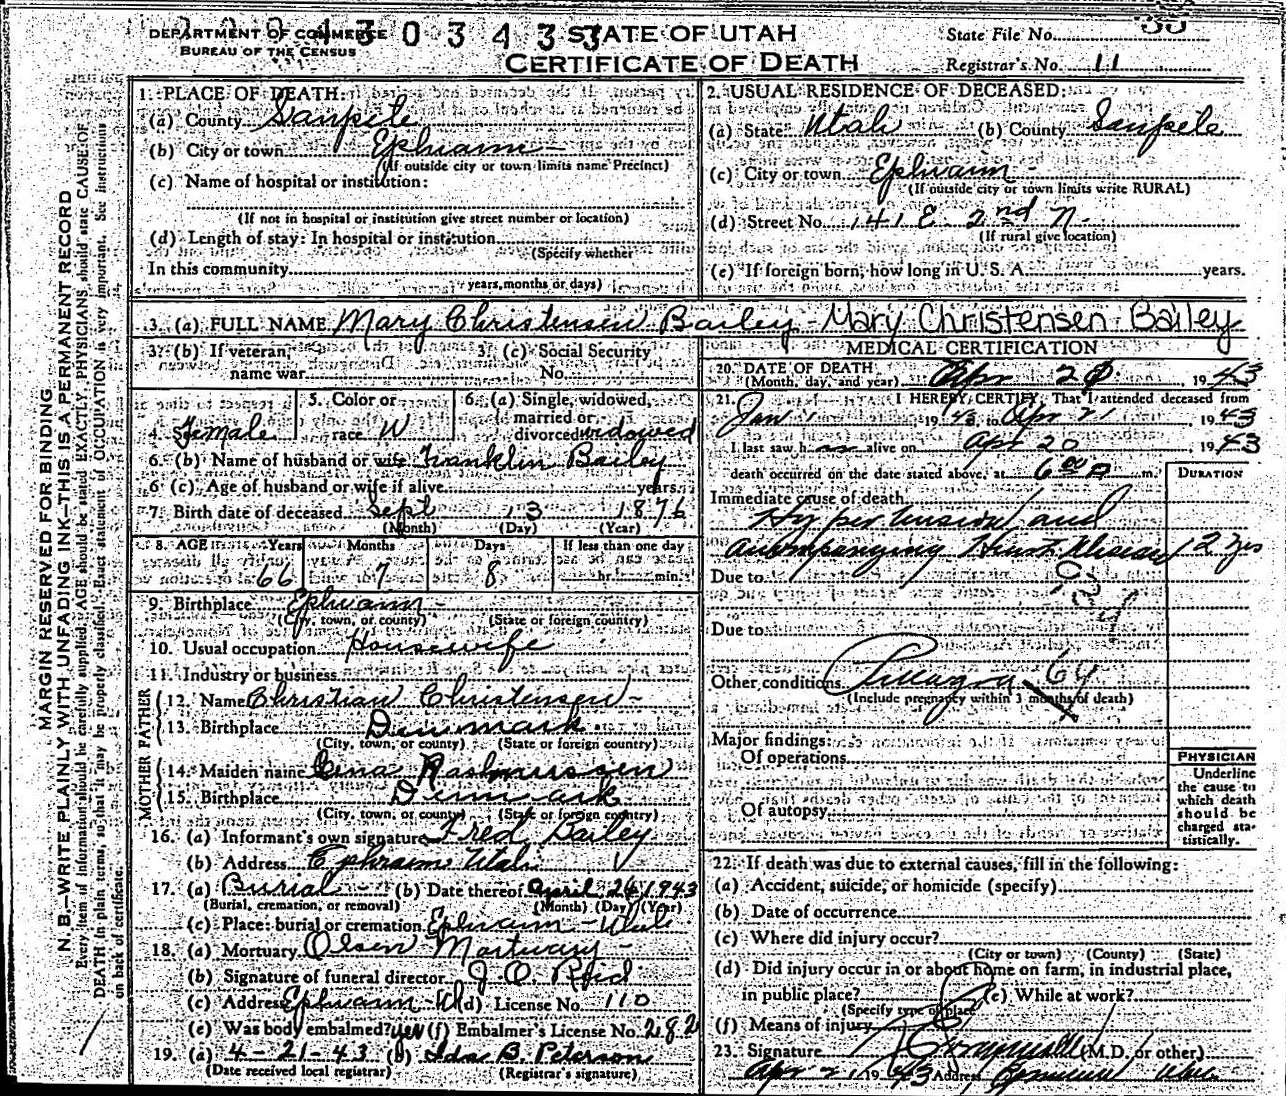 DEPARTMENT OF COMMERCE
BUREAU OF THE CENSUS
30343
STATE OF UTAH
CERTIFICATE OF DEATH
State File No. 33
Registrar's No. 11
MARGIN RESERVED FOR BINDING
N. B.—WRITE PLAINLY WITH UNFADING INK—THIS IS A PERMANENT RECORD
Every item of information should be carefully supplied. AGE should be stated EXACTLY. PHYSICIANS should state CAUSE OF
DEATH in plain terms, so that it may be properly classified. Exact statement of OCCUPATION is very important. See instructions
on back of certificate.
1. PLACE OF DEATH:
(a) County Sanpete
(b) City or town Ephraim
(If outside city or town limits name Precinct)
(c) Name of hospital or institution:
(If not in hospital or institution give street number or location)
(d) Length of stay: In hospital or institution
(Specify whether
In this community
years, months or days)
2. USUAL RESIDENCE OF DECEASED:
(a) State Utah (b) County Sanpete
(c) City or town Ephraim
(If outside city or town limits write RURAL)
(d) Street No. 141 E 2nd N.
(If rural give location)
(e) If foreign born, how long in U. S. A. years.
3. (a) FULL NAME Mary Christensen Bailey - Mary Christensen Bailey
3. (b) If veteran, name war
3. (c) Social Security No.
4. Female
5. Color or race W
6. (a) Single, widowed, married or divorced widowed
6. (b) Name of husband or wife Franklin Bailey
6 (c) Age of husband or wife if alive years.
7. Birth date of deceased Sept 13 1876
(Month) (Day) (Year)
8. AGE Years Months Days If less than one day
66 7 8 hr. min.
9. Birthplace Ephraim
(City, town, or county) (State or foreign country)
10. Usual occupation Housewife
11. Industry or business
FATHER
12. Name Christian Christensen
13. Birthplace Denmark
(City, town, or county) (State or foreign country)
MOTHER
14. Maiden name Rasmussen
15. Birthplace Denmark
(City, town, or county) (State or foreign country)
16. (a) Informant's own signature Fred Bailey
(b) Address Ephraim Utah
17. (a) Burial (b) Date thereof April 26 1943
(Burial, cremation, or removal) (Month) (Day) (Year)
(c) Place: burial or cremation Ephraim - Utah
18. (a) Mortuary Olsen Mortuary
(b) Signature of funeral director
(c) Address Ephraim - Ut (d) License No. 110
(e) Was body embalmed? yes (f) Embalmer's License No. 282
19. (a) 4-21-43 (b) Ida B. Peterson
(Date received local registrar) (Registrar's signature)
MEDICAL CERTIFICATION
20. DATE OF DEATH
(Month, day, and year) Apr 20, 1943
21. I HEREBY CERTIFY, That I attended deceased from
Jan 1 1943, to Apr 21, 1943
I last saw h alive on Apr 20, 1943
death occurred on the date stated above, at 6 00 A m.
DURATION
Immediate cause of death
Hypertension and
accompanying Heart Disease 12 yrs
92d
Due to
Due to
Other conditions Pellagra 64
(Include pregnancy within 3 months of death)
Major findings:
Of operations
Of autopsy
PHYSICIAN
Underline
the cause to
which death
should be
charged sta-
tistically.
22. If death was due to external causes, fill in the following:
(a) Accident, suicide, or homicide (specify)
(b) Date of occurrence
(c) Where did injury occur?
(City or town) (County) (State)
(d) Did injury occur in or about home on farm, in industrial place,
in public place? (e) While at work?
(Specify type of place)
(f) Means of injury
23. Signature (M.D. or other)
Apr 21, 1943 Address Ephraim Utah